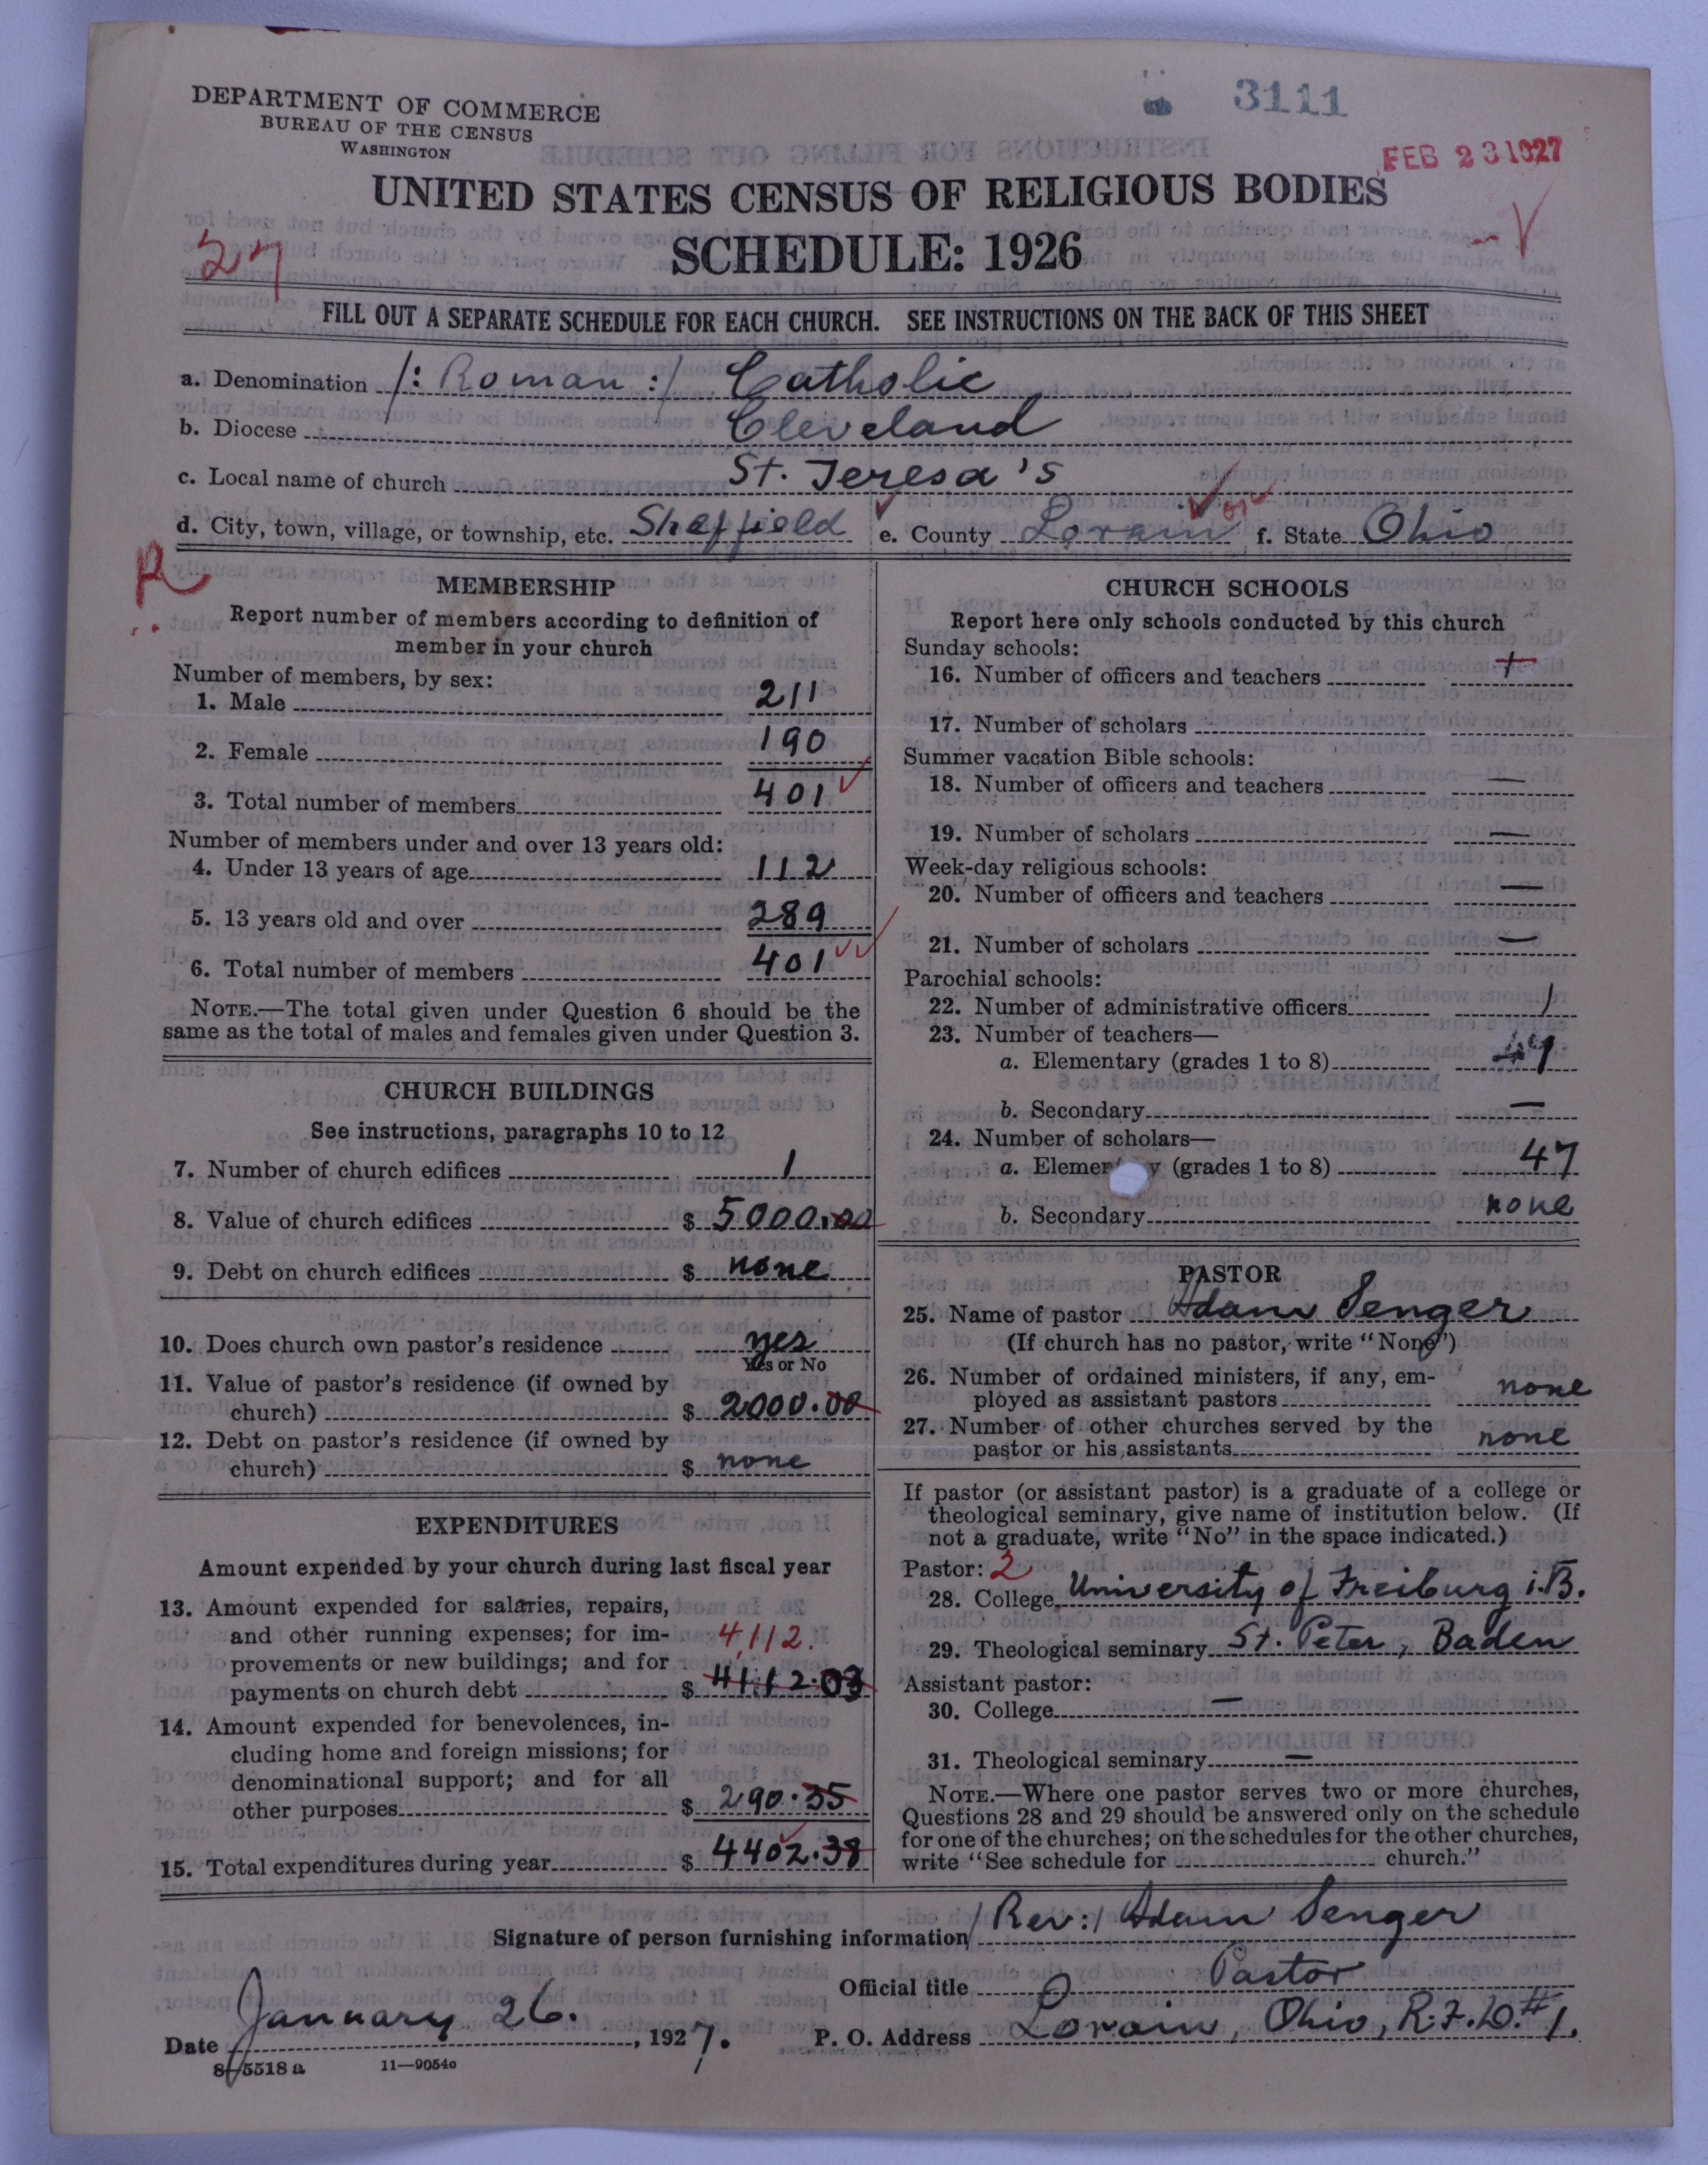 DEPARTMENT OF COMMERCE
BUREAU OF THE CENSUS
WASHINGTON
3111
FEB 23 1927
UNITED STATES CENSUS OF RELIGIOUS BODIES
SCHEDULE: 1926
27
FILL OUT A SEPARATE SCHEDULE FOR EACH CHURCH. SEE INSTRUCTIONS ON THE BACK OF THIS SHEET
a. Denomination /: Roman :/ Catholic
b. Diocese Cleveland
c. Local name of church St. Teresa's
d. City, town, village, or township, etc. Sheffield e. County Lorain f. State Ohio
R
MEMBERSHIP
Report number of members according to definition of
member in your church
Number of members, by sex:
1. Male 211
2. Female 190
3. Total number of members 401
Number of members under and over 13 years old:
4. Under 13 years of age 112
5. 13 years old and over 289
6. Total number of members 401
NOTE.—The total given under Question 6 should be the
same as the total of males and females given under Question 3.
CHURCH BUILDINGS
See instructions, paragraphs 10 to 12
7. Number of church edifices 1
8. Value of church edifices $ 5000.00
9. Debt on church edifices $ none
10. Does church own pastor's residence yes
Yes or No
11. Value of pastor's residence (if owned by
church) $ 2000.00
12. Debt on pastor's residence (if owned by
church) $ none
EXPENDITURES
Amount expended by your church during last fiscal year
13. Amount expended for salaries, repairs,
and other running expenses; for im-
4112.
provements or new buildings; and for
payments on church debt $ 4112.03
14. Amount expended for benevolences, in-
cluding home and foreign missions; for
denominational support; and for all
other purposes $ 290.35
15. Total expenditures during year $ 4402.38
CHURCH SCHOOLS
Report here only schools conducted by this church
Sunday schools:
16. Number of officers and teachers +
17. Number of scholars
Summer vacation Bible schools:
18. Number of officers and teachers —
19. Number of scholars —
Week-day religious schools:
20. Number of officers and teachers —
21. Number of scholars —
Parochial schools:
22. Number of administrative officers 1
23. Number of teachers—
a. Elementary (grades 1 to 8)
b. Secondary —
24. Number of scholars—
a. Elemen y (grades 1 to 8) 47
b. Secondary none
PASTOR
25. Name of pastor Adam Senger
(If church has no pastor, write "None")
26. Number of ordained ministers, if any, em-
ployed as assistant pastors none
27. Number of other churches served by the
pastor or his assistants none
If pastor (or assistant pastor) is a graduate of a college or
theological seminary, give name of institution below. (If
not a graduate, write "No" in the space indicated.)
Pastor: 2
28. College University of Freiburg i.B.
29. Theological seminary St. Peter, Baden
Assistant pastor:
30. College —
31. Theological seminary —
NOTE.—Where one pastor serves two or more churches,
Questions 28 and 29 should be answered only on the schedule
for one of the churches; on the schedules for the other churches,
write "See schedule for church."
Signature of person furnishing information /Rev:/ Adam Senger
Official title Pastor
Date January 26. , 1927. P. O. Address Lorain, Ohio, R.F.D.#1.
8—5518 a 11—9054a